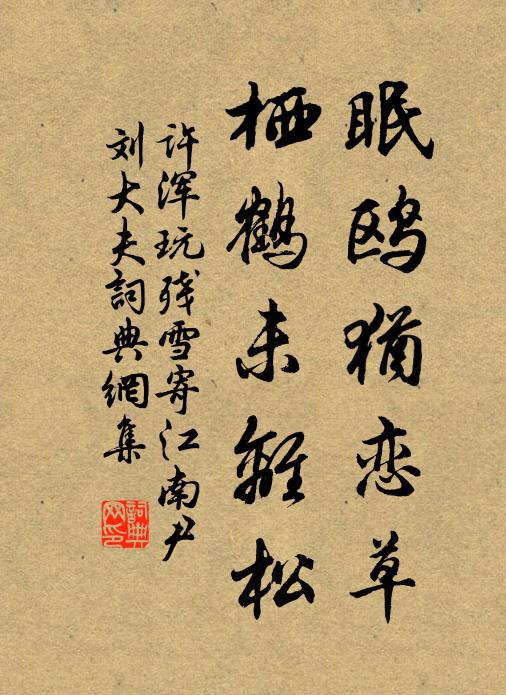 眠鸥犹恋草
栖鹤未离松
许浑玩残雪寄江南尹
刘大夫詞典網集
詞典网印